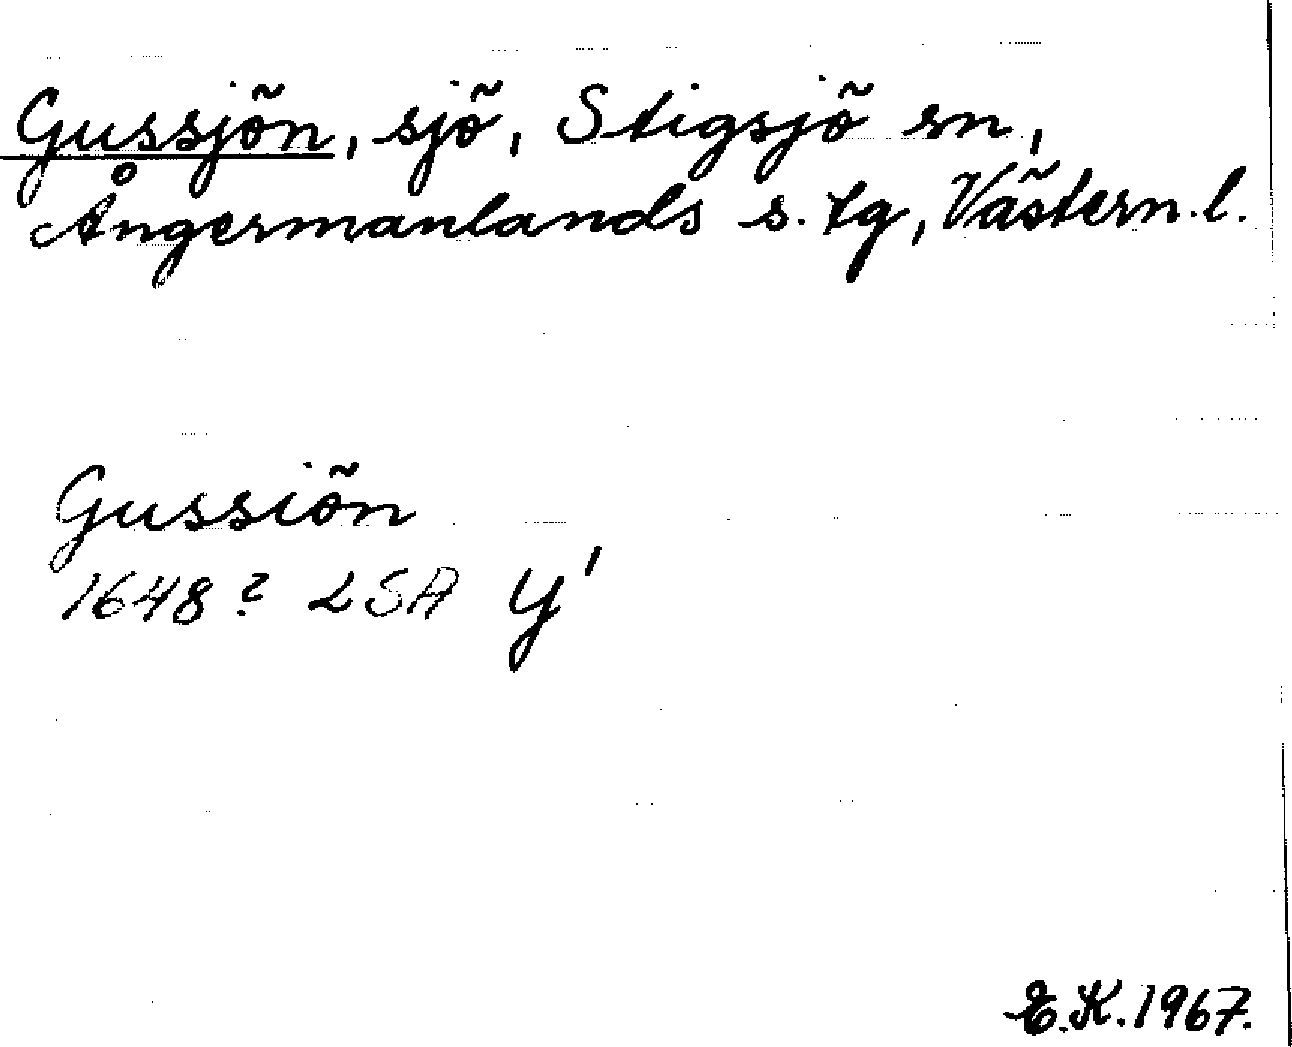 Gussjön, sjö, Stigsjö sn,
Ångermanlands s. tg, Västern.l.
Gussiön
1648? LSA Y'
E.K.1967.